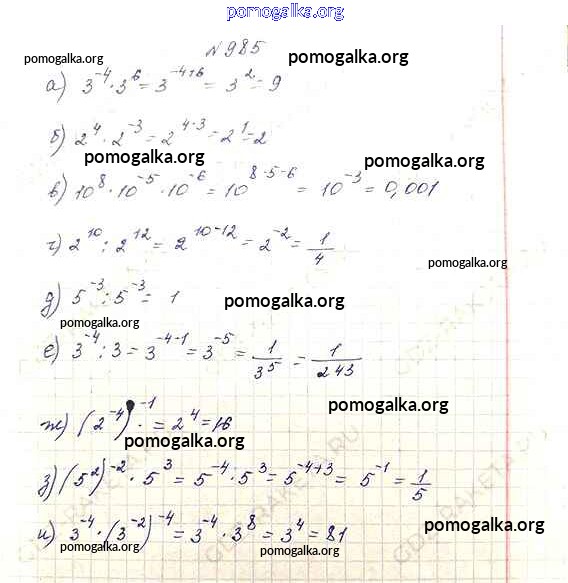 pomogalka.org
№985
pomogalka.org pomogalka.org
а) 3⁻⁴·3⁶=3⁻⁴⁺⁶=3²=9
б) 2⁴·2⁻³=2⁴⁻³=2¹=2
pomogalka.org pomogalka.org
в) 10⁸·10⁻⁵·10⁻⁶=10⁸⁻⁵⁻⁶=10⁻³=0,001
г) 2¹⁰:2¹²=2¹⁰⁻¹²=2⁻²=1/4
pomogalka.org
д) 5⁻³:5⁻³=1
pomogalka.org
pomogalka.org
е) 3⁻⁴:3=3⁻⁴⁻¹=3⁻⁵=1/3⁵=1/243
pomogalka.org
ж) (2⁻⁴)⁻¹=2⁴=16
pomogalka.org
з) (5²)⁻²·5³=5⁻⁴·5³=5⁻⁴⁺³=5⁻¹=1/5
pomogalka.org
и) 3⁻⁴·(3⁻²)⁻⁴=3⁻⁴·3⁸=3⁴=81
pomogalka.org pomogalka.org